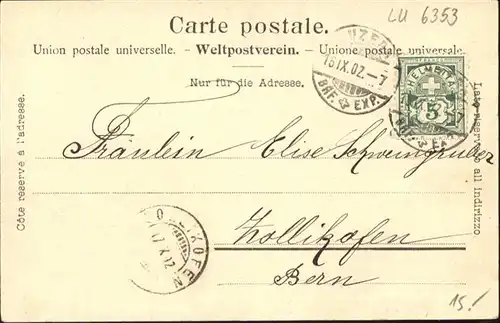 LU 6353
Carte postale.
Union postale universelle. – Weltpostverein. – Unione postale universale.
Nur für die Adresse.
LUZERN
16.IX.02.–7
BRF. EXP.
HELVETIA
5
Côte reservé à l'adresse.
Lato riservato all indirizzo
Fräulein Elise Schweingruber
Zollikofen
Bern
ZOLLIKOFEN
15.!